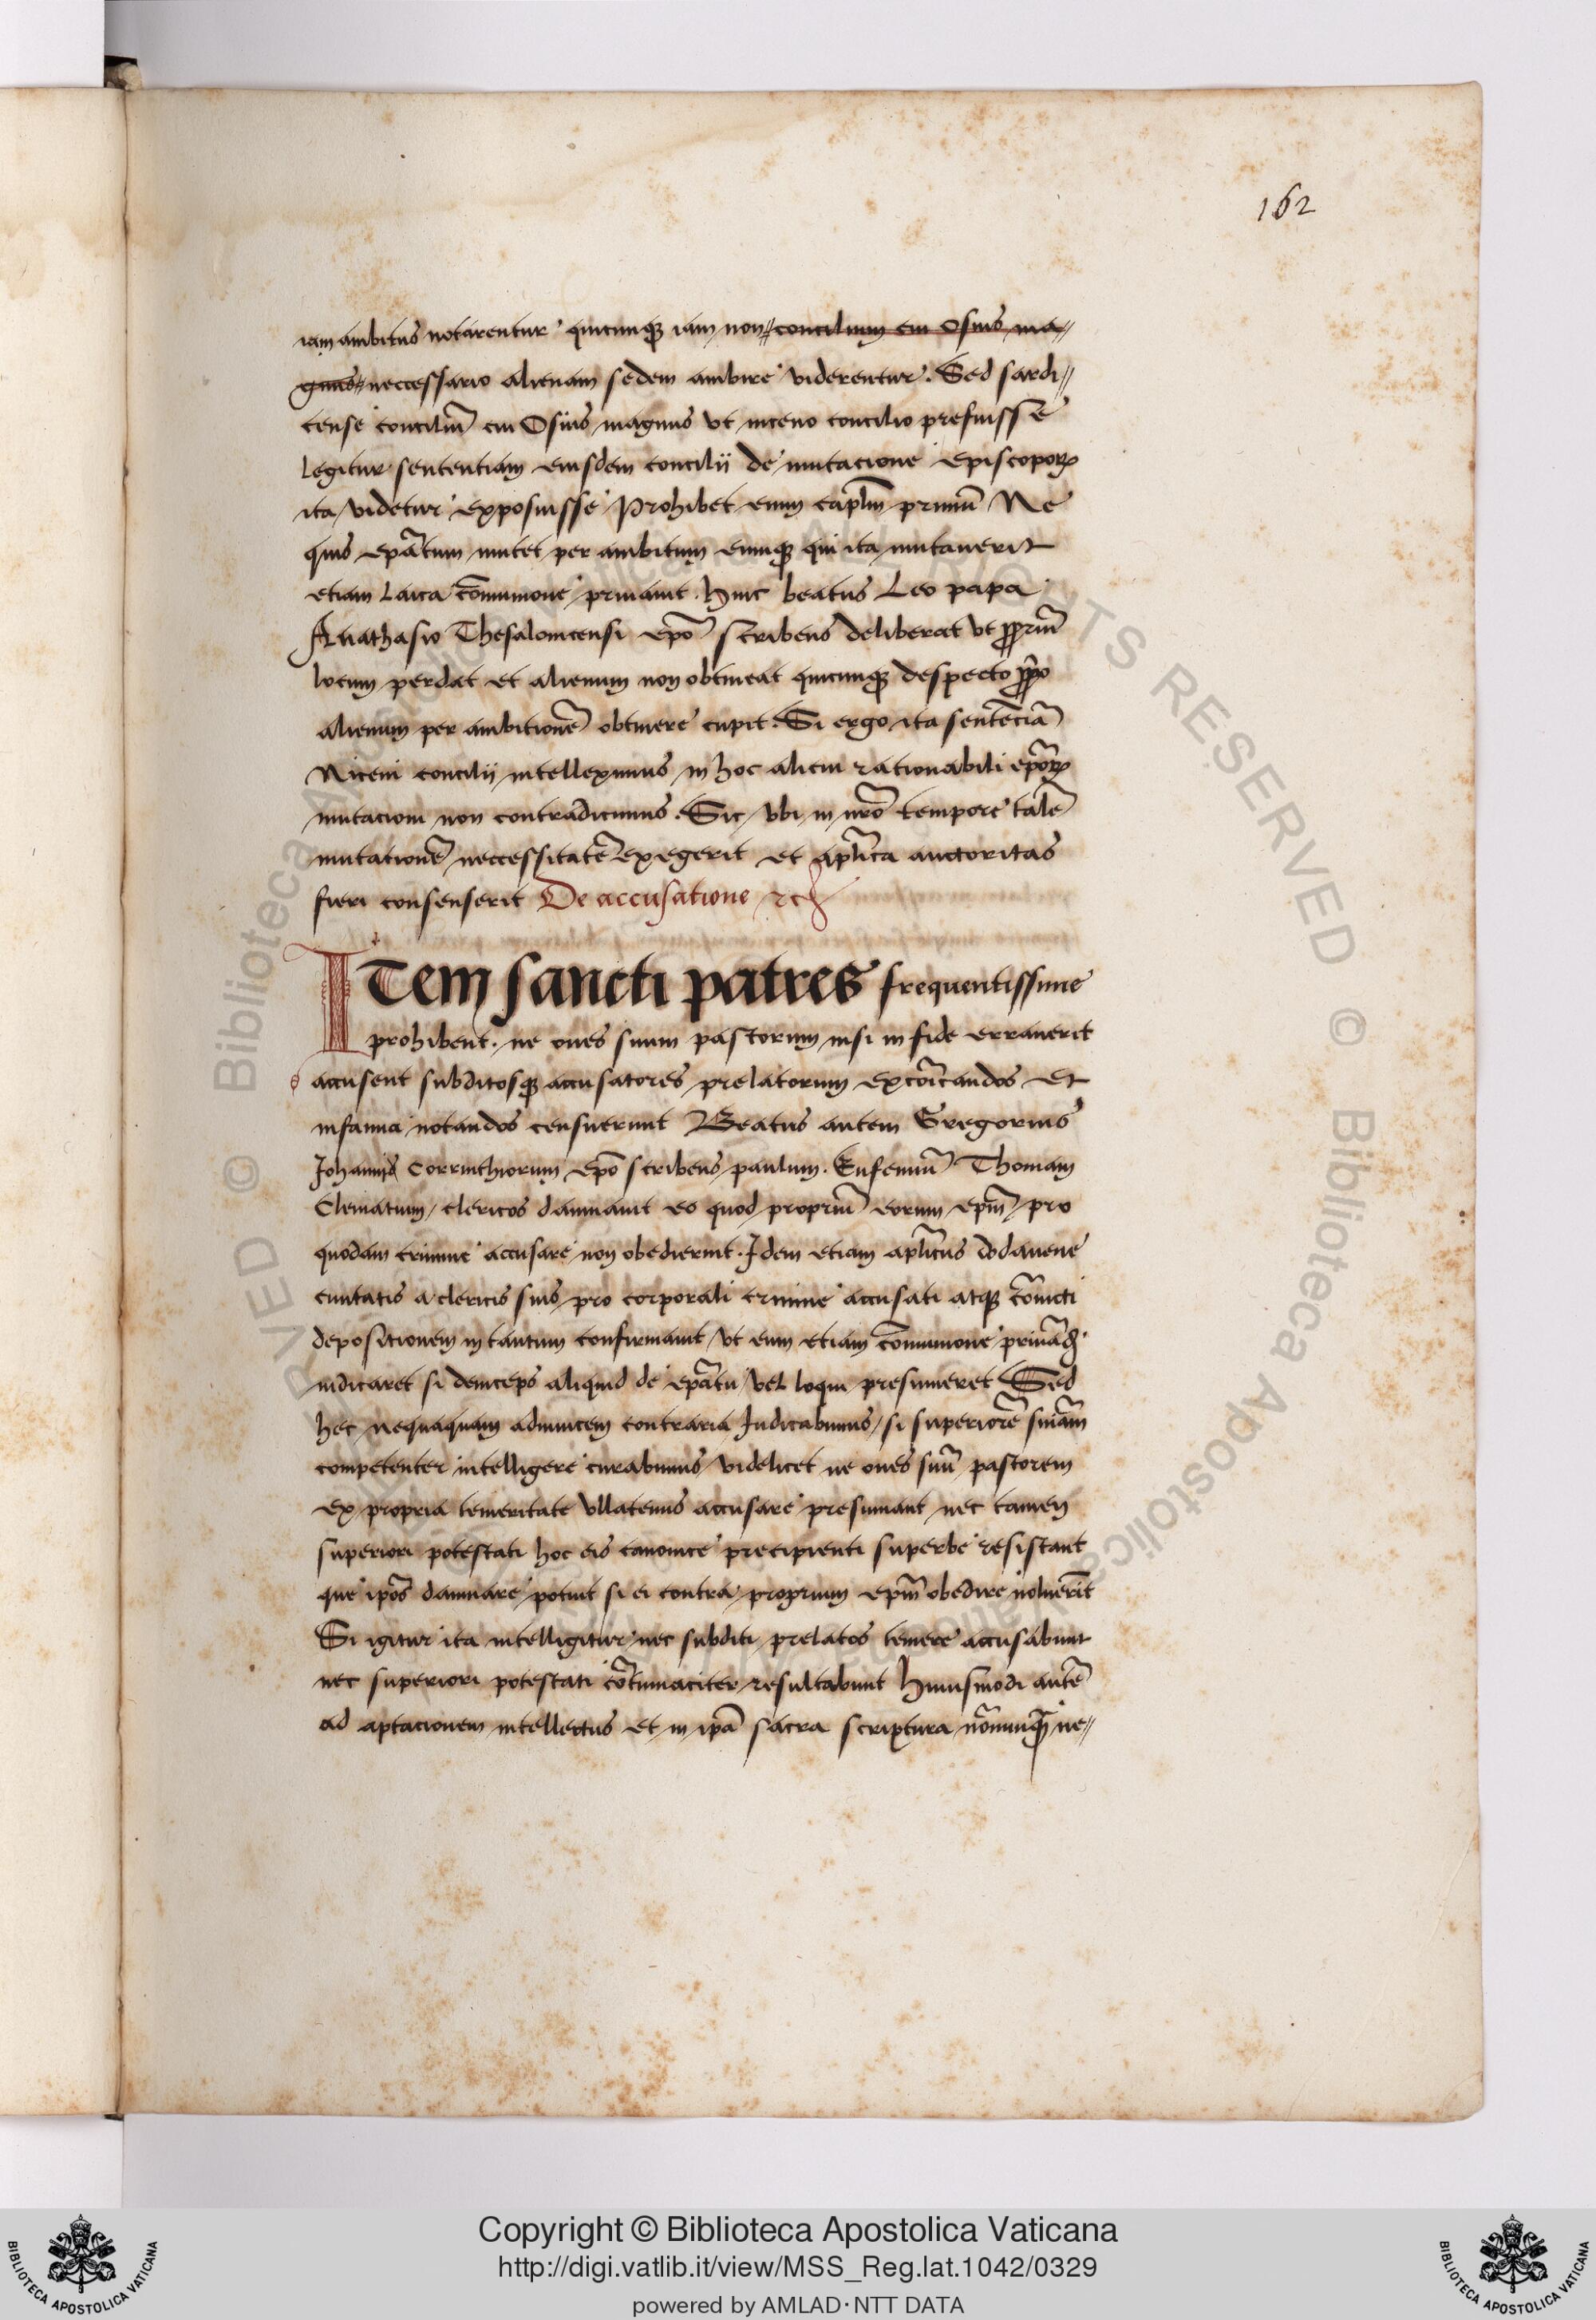 162
iam ambitus notarentur quicunqꝫ iam non concilium cui Osius ma
gnus neccessario alienam sedem ambire viderentur. Sed sardi
tense conciliū cui Osius magnus vt niceno concilio prefuisse
legitur sententiam eiusdem concilii de mutacione episcoporꝝ
ita videtur exposuisse Prohibet enim cap̄lm primū Ne
quis ep̄atum mutet per ambitum eumqꝫ qui ita mutauerit
etiam laica cōmunione priuauit. Hinc beatus Leo papa
Anathasio Thesalonicensi ep̄o scribens deliberat vt ꝓpriū
locum perdat et alienum non obtineat quicunqꝫ despecto ꝓp̄o
alienum per ambitionē obtinere cupit. Si ergo ita sentēciā
Niceni concilii intelleximus in hoc alicui rationabili ep̄orꝝ
mutacioni non contradicimus. Sic vbi in nr̄o tempore talē
mutationē neccessitatē exegerit et ap̄lica auctoritas
fieri consenserit De accusatione ⁊c
ITem sancti patres frequentissime
prohibent. ne oues suum pastorum nisi in fide errauerit
accusent subditosqꝫ accusatores prelatorum excōicandos et
infamia notandos censuerunt Beatus autem Gregorius
Johannis Corrinthiorum ep̄o scribens paulum. Eufemiū Thomam
clericos damnauit eo quod propriū eorum ep̄m pro
quodam crimine accusare non obedierint. Idem etiam ap̄licus dodauene
ciuitatis a clericis suis pro corporali crimine accusati atqꝫ cōuicti
depositionem in tantum confirmauit vt eum etiam cōmunione
iudicaret si deinceps aliquid de ep̄atu vel loqui presumeret Sed
hec nequaquam adinuicem contraria Judicabimus, si superiorē sn̄iam
competenter intelligere curabimus videlicet ne oues suū pastorem
ex propria temeritate vllatenus accusare presumant nec tamen
superiori potestati hoc eis canonice precipienti superbe resistant
que ip̄os damnare potuit si ei contra proprium ep̄m obedire noluer̄it
Si igitur ita intelligitur nec subditi prelatos temere accusabunt
nec superiori potestati cōtumaciter resultabunt Huiusmodi autē
ad aptacionem intellectus et in ip̄a sacra scriptura nōnunqꝫ ne
Copyright © Biblioteca Apostolica Vaticana
http://digi.vatlib.it/view/MSS_Reg.lat.1042/0329
powered by AMLAD·NTT DATA
BIBLIOTECA APOSTOLICA VATICANA
BIBLIOTECA APOSTOLICA VATICANA